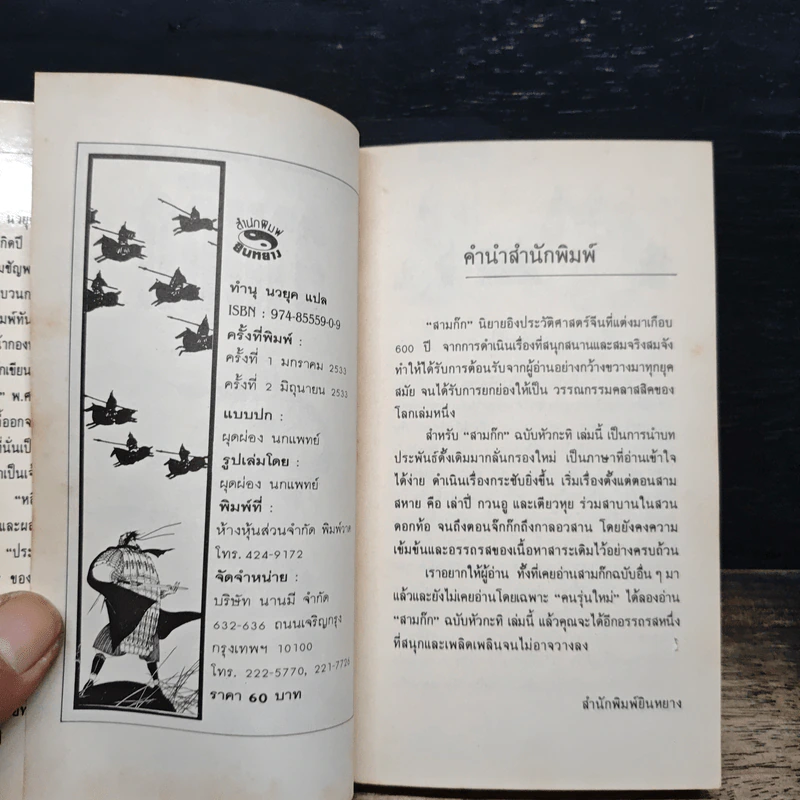 นวยุ
กิดปี
มชัญพ
บวนก
มพ์ทัน
น้ากอง
กเขียน
พ.ศ
อ้ออกจ
ที่นั่นเป็
าเป็นเจ้
"หลั
และผล
"ประ
ของ
สำนักพิมพ์
ยินหยาง
ทำนุ นวยุค แปล
ISBN : 974-85559-0-9
ครั้งที่พิมพ์ :
ครั้งที่ 1 มกราคม 2533
ครั้งที่ 2 มิถุนายน 2533
แบบปก :
ผุดผ่อง นกแพทย์
รูปเล่มโดย :
ผุดผ่อง นกแพทย์
พิมพ์ที่ :
ห้างหุ้นส่วนจำกัด พิมพ์วาด
โทร. 424-9172
จัดจำหน่าย :
บริษัท นานมี จำกัด
632-636 ถนนเจริญกรุง
กรุงเทพฯ 10100
โทร. 222-5770, 221-7726
ราคา 60 บาท
คำนำสำนักพิมพ์
"สามก๊ก" นิยายอิงประวัติศาสตร์จีนที่แต่งมาเกือบ
600 ปี จากการดำเนินเรื่องที่สนุกสนานและสมจริงสมจัง
ทำให้ได้รับการต้อนรับจากผู้อ่านอย่างกว้างขวางมาทุกยุค
สมัย จนได้รับการยกย่องให้เป็น วรรณกรรมคลาสสิคของ
โลกเล่มหนึ่ง
สำหรับ "สามก๊ก" ฉบับหัวกะทิ เล่มนี้ เป็นการนำบท
ประพันธ์ดั้งเดิมมากลั่นกรองใหม่ เป็นภาษาที่อ่านเข้าใจ
ได้ง่าย ดำเนินเรื่องกระชับยิ่งขึ้น เริ่มเรื่องตั้งแต่ตอนสาม
สหาย คือ เล่าปี่ กวนอู และเตียวหุย ร่วมสาบานในสวน
ดอกท้อ จนถึงตอนจิ๊กก๊กถึงกาลอวสาน โดยยังคงความ
เข้มข้นและอรรถรสของเนื้อหาสาระเดิมไว้อย่างครบถ้วน
เราอยากให้ผู้อ่าน ทั้งที่เคยอ่านสามก๊กฉบับอื่น ๆ มา
แล้วและยังไม่เคยอ่านโดยเฉพาะ "คนรุ่นใหม่" ได้ลองอ่าน
"สามก๊ก" ฉบับหัวกะทิ เล่มนี้ แล้วคุณจะได้อีกอรรถรสหนึ่ง
ที่สนุกและเพลิดเพลินจนไม่อาจวางลง
สำนักพิมพ์ยินหยาง